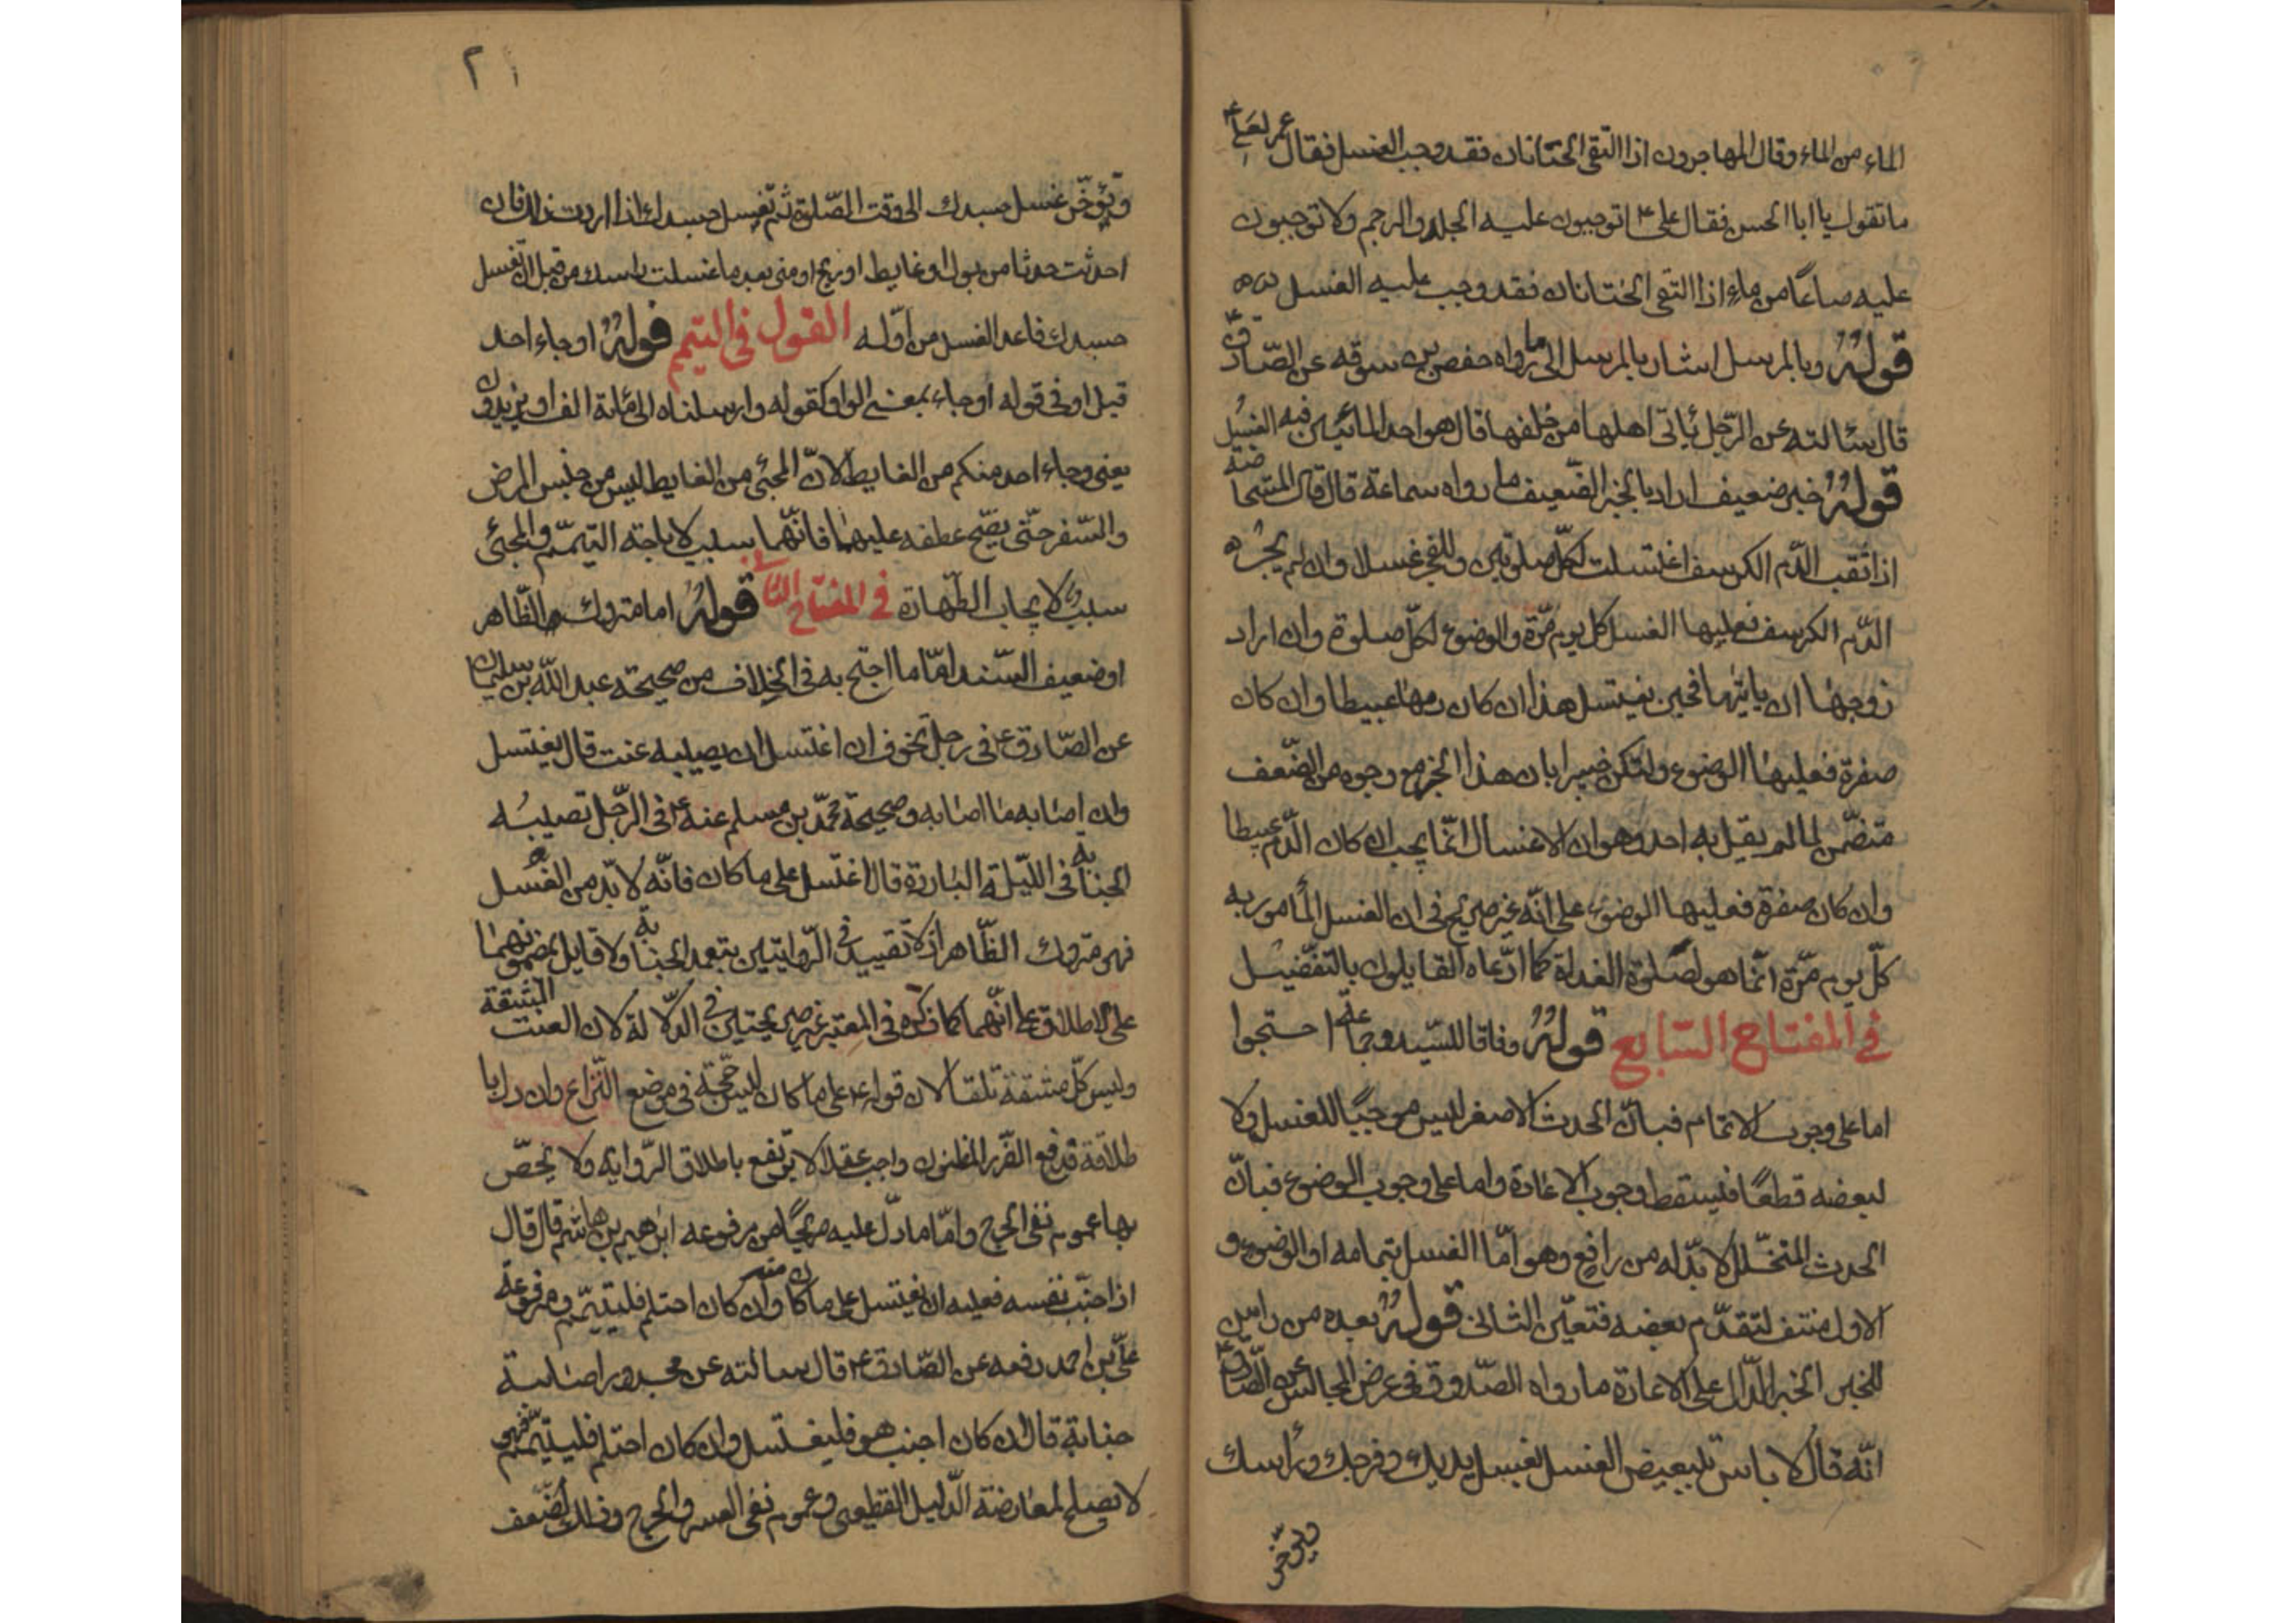 الماء من الماء وقال المهاجرون اذا التقى الختانان فقد وجب الغسل فقال عمر لعلي ع
ما تقول يا ابا الحسن فقال علي ع اتوجبون عليه الجلد والرجم ولا توجبون
عليه صاعًا من ماء اذا التقى الختانان فقد وجب عليه الغسل
قولهُ وبالمرسل اشار بالمرسل الى ما رواه حفص بن سوقه عن الصّادق
قال سئالته عن الرّجل ئاتى اهلها من خلفها قال هو احد المائتيين فيه الغسل
قولهُ خبر ضعيف اراد بالخبر الضّعيف ما رواه سماعة قال قال المستحاضة
اذا ثقب الدّم الكرسف اغتسلت لكلّ صلوتين وللفجر غسلا وان لم يجز
الدّم الكرسف فعليها الغسل كل يوم مرّة والوضوء لكلّ صلوة وان اراد
زوجها ان يايتها فحين يغتسل هذا ان كان دمها عبيطا وان كان
صفرة فعليها الوضوء ولتكن خبيرا بان هذا الخبر مع وجوه من الضّعف
متضمّن لما لم يقل به احد وهو ان الاغتسال انّما يجب ان كان الدّم عبيطا
وان كان صفرة فعليها الوضوء على انّه غير صريح فى ان الغسل المٔامور به
كلّ يوم مرّة انّما هو لصلوة الغداة كما ادّعاه القايلون بالتفضيل
فى المفتاح السّابع قولهُ وفاقا للسّيد وجماعة احتجوا
اما على وجوب الاتمام فبانّ الحدث الاصغر ليس موجبًا للغسل ولا
لبعضه قطعًا فيسقط وجوب الاعادة واما على وجوب الوضوء فبانّ
الحدث المتخلّل لا بدّ له من رافع وهو امّا الغسل بتمامه او الوضوء و
الاول منتف لتقدّم بعضه فتعيّن الثانى قولهُ بعده من راس
للخبر الخبر الدّال على الاعادة ما رواه الصّدوق فى عرض المجالس عن الصّادق ع
انّه قال لا باس بتبعيض الغسل تغسل يديك وفرجك ورٔاسك
وتؤخّر
٢١
وتؤخّر غسل جسدك الى وقت الصّلوة ثمّ تغسل جسدك اذا اردت ذلك فان
احدثت حدثا من بول او غايط او ريح او منى بعد ما غسلت راسك من قبل ان تغسل
جسدك فاعد الغسل من اوّله القول فى التيمم قولهُ او جاء احد
قيل او فى قوله او جاء بمعنى الواو كقوله وارسلناه الى مٔاية الف او يزيدون
يعنى وجاء احد منكم من الغايط لانّ المجئى من الغايط ليس من جنس المرض
والسّفر حتّى يصّح عطفه عليهما فانّهما سبب لاباحة التيمّم والمجئى
سبب لايجاب الطّهارة فى المفتاح الثانى قولهُ اما متروك الظّاهر
او ضعيف السّند امّا ما احتج به فى الخلاف من صحيحة عبد اللّه بن سليمان
عن الصّادق ع فى رجل تخوف ان اغتسل ان يصيبه عنت قال يغتسل
وان اصابه ما اصابه وصحيحة محمّد بن مسلم عنه ع فى الرّجل تصيبه
الجنابة فى اللّيلة الباردة قال اغتسل على ما كان فانّه لا بدّ من الغسل
فهو متروك الظّاهر اذ لا تقييد فى الرّوايتين بتعمد الجنابة ولا قايل بمضمونهما
على الاطلاق على انّهما كما ذكره فى المعتبر غير صريحتين فى الدّلالة لان العنت المشقة
وليس كلّ مشقة تلفا لان قوله ع على ما كان ليس حجّة فى موضع النّزاع وان دلّ با
طلاقة فدفع الضّرر المظنون واجب عقلا لا يرتفع باطلاق الرّواية ولا يخصّ
بها عموم نفى الحرج وامّا ما دلّ عليه صريحًا من مرفوعه ابرهيم بن هاشم قال قال
اذا جنّب نفسه فعليه ان يغتسل على ما كان منه وان كان احتلم فليتيمّم ومرفوعة
علىّ بن احمد رفعه عن الصّادق ع قال سالته عن مجدور اصابته
جنابة قال ان كان اجنب هو فليغتسل وان كان احتلم فليتيمّم فهى
لا تصلح لمعارضة الدّليل القطعى وعموم نفى العسر والحرج وذلك لضّعف